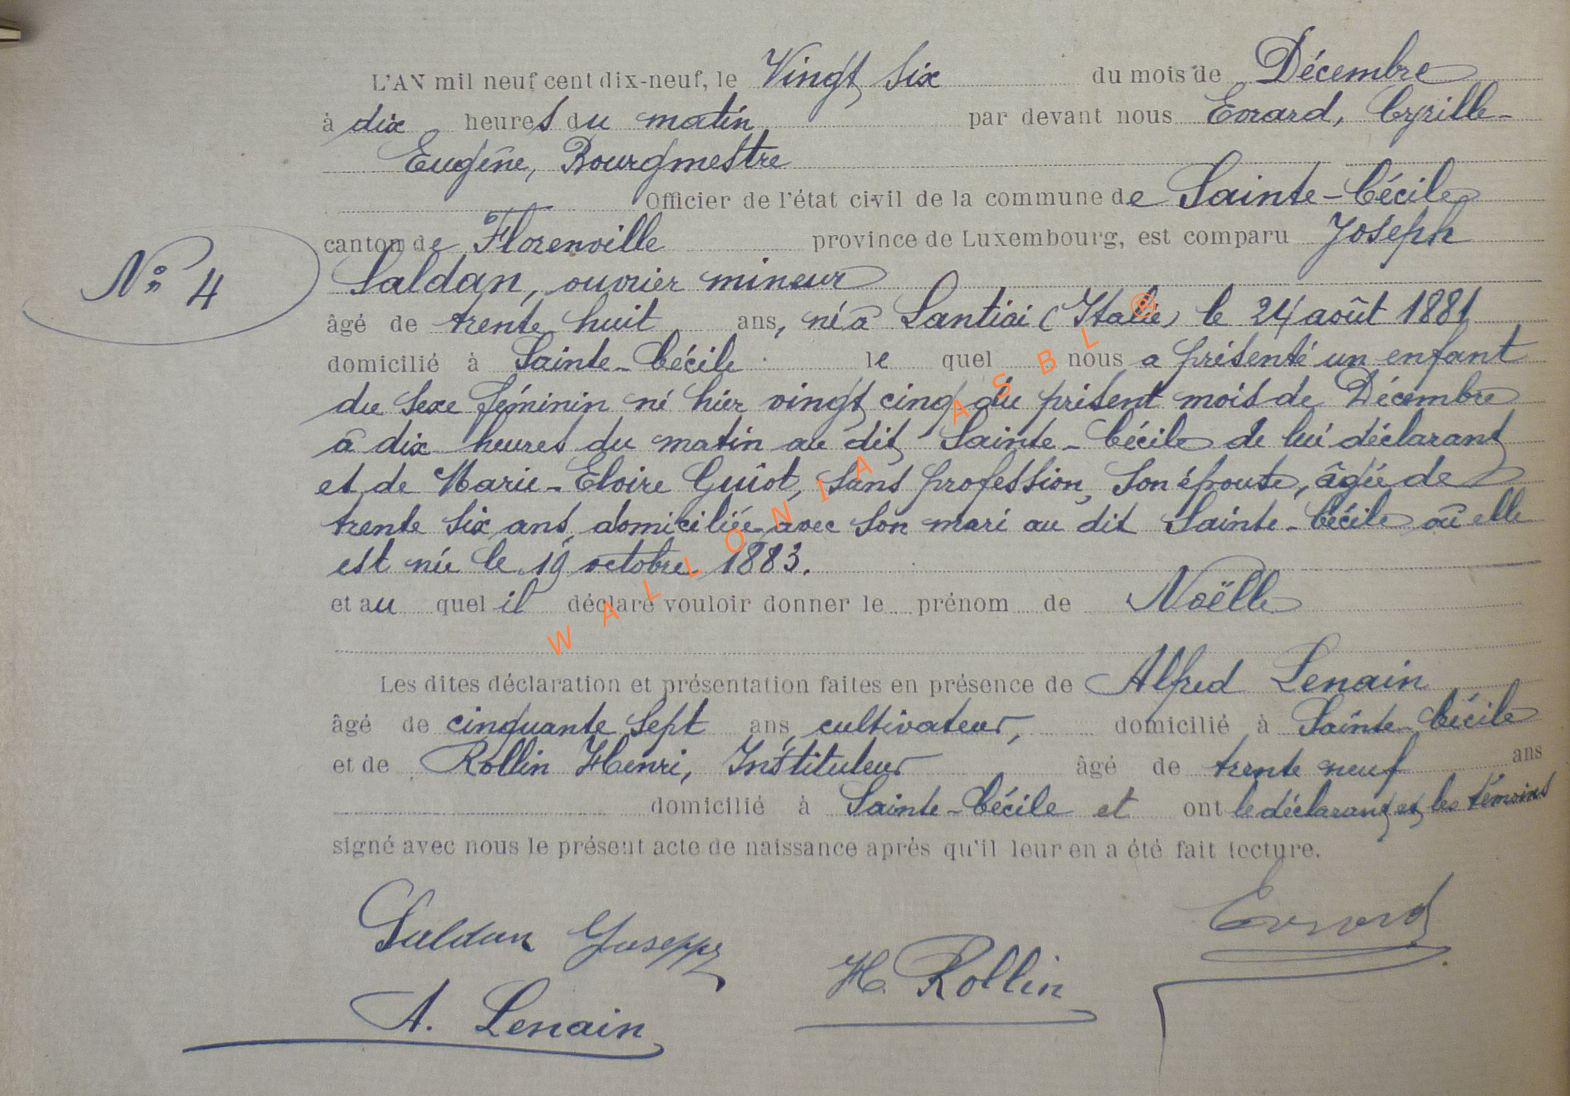 L'AN mil neuf cent dix-neuf, le Vingt six du mois de Décembre
à dix heures du matin par devant nous Evrard, Cyrille-
Eugène, Bourgmestre
Officier de l'état civil de la commune de Sainte-Cécile
canton de Florenville province de Luxembourg, est comparu Joseph
N° 4
Saldan, ouvrier mineur
âgé de trente huit ans, né à Santiai (Italie) le 24 août 1881
domicilié à Sainte-Cécile lequel nous a présenté un enfant
du sexe féminin né hier vingt cinq du présent mois de Décembre
à dix heures du matin au dit Sainte-Cécile de lui déclarant
et de Marie-Eloire Guiot, sans profession, son épouse, âgée de
trente six ans, domiciliée avec son mari au dit Sainte-Cécile où elle
est née le 19 octobre 1883.
et au quel il déclare vouloir donner le prénom de Noëlle
Les dites déclaration et présentation faites en présence de Alfred Lenain
âgé de cinquante sept ans, cultivateur, domicilié à Sainte-Cécile
et de Rollin Henri, Instituteur âgé de trente neuf ans
domicilié à Sainte-Cécile et ont le déclarant et les témoins
signé avec nous le présent acte de naissance après qu'il leur en a été fait lecture.
Saldan Giuseppe
Evrard
H. Rollin
A. Lenain
WALLONIA ASBL @